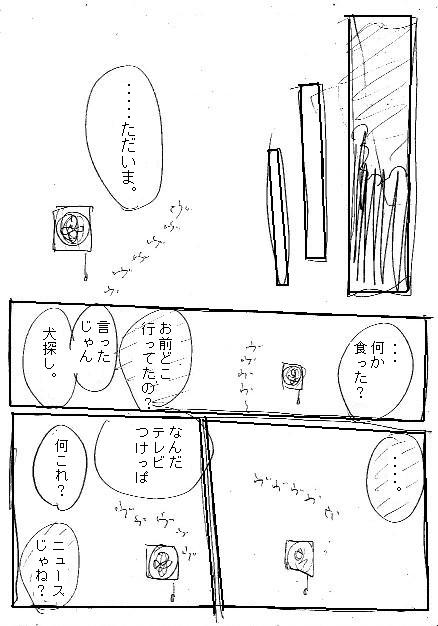 ‥‥‥ただいま。
ヴヴヴヴヴヴ
‥‥
何か
食った?
ヴヴヴヴ〜
お前どこ
行ってたの?
言った
じゃん
犬探し。
‥‥‥。
ヴヴヴヴヴ
なんだ
テレビ
つけっぱ
ヴヴヴヴヴ
何これ?
ニュース
じゃね?